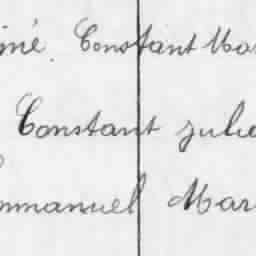 Constant
Constant Julie
mmanuel Mar